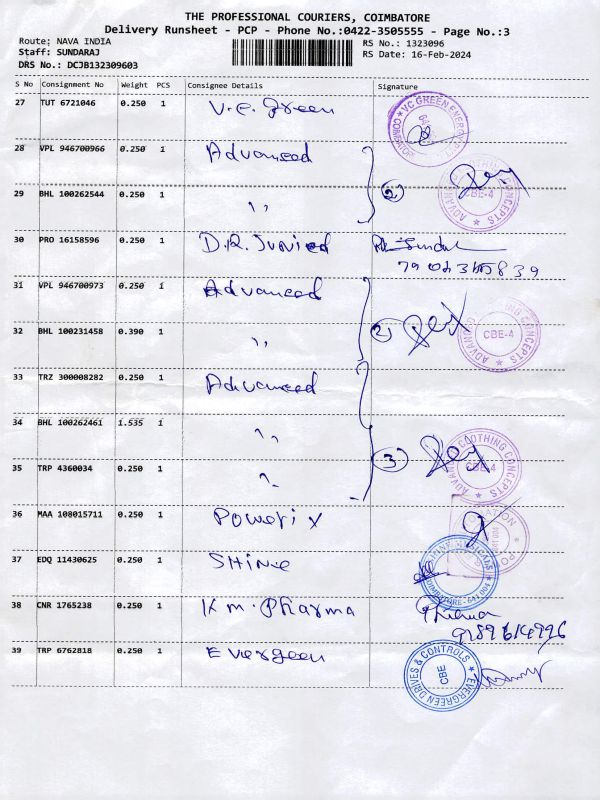 THE PROFESSIONAL COURIERS, COIMBATORE
Delivery Runsheet - PCP - Phone No.:0422-3505555 - Page No.:3
Route: NAVA INDIA
RS No.: 1323096
Staff: SUNDARAJ
RS Date: 16-Feb-2024
DRS No.: DCJB132309603
S No Consignment No Weight PCS Consignee Details Signature
27 TUT 6721046 0.250 1 V.C. Green
VC GREEN ENERGY
28 VPL 946700966 0.250 1 Advanced
29 BHL 100262544 0.250 1 " 2
CLOTHING CONCEPTS CBE-4
30 PRO 16158596 0.250 1 D.R.
31 VPL 946700973 0.250 1 Advanced
32 BHL 100231458 0.390 1 " 2
CONCEPTS CBE-4
33 TRZ 300008282 0.250 1 Advanced
34 BHL 100262461 1.535 1 "
35 TRP 4360034 0.250 1 " 3
CLOTHING CONCEPTS CBE-4
36 MAA 108015711 0.250 1 Powerix
37 EDQ 11430625 0.250 1 Shine
38 CNR 1765238 0.250 1 K.M. Pharma
39 TRP 6762818 0.250 1 Evergreen
EVERGREEN DRIVES & CONTROLS CBE